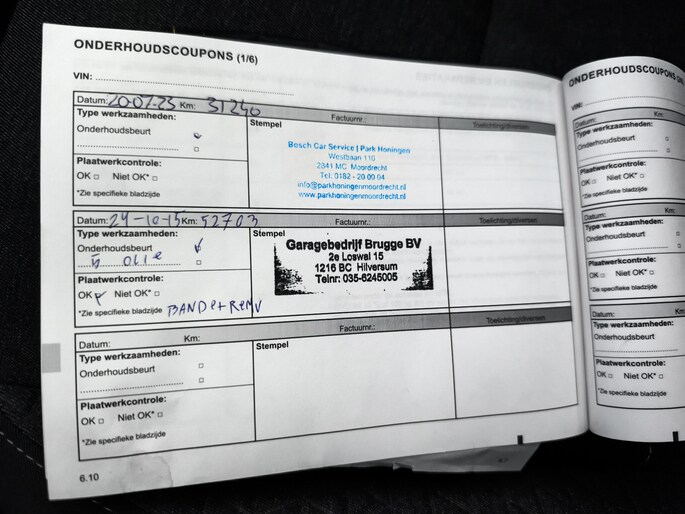 ONDERHOUDSCOUPONS (1/6)
VIN:
Datum: 20-07-23 Km: 31240
Factuurnr.:
Toelichting/diversen
Type werkzaamheden:
Onderhoudsbeurt
Stempel
Bosch Car Service | Park Honingen
Westbaan 110
2841 MC Moordrecht
Tel: 0182 - 20 00 04
info@parkhoningenmoordrecht.nl
www.parkhoningenmoordrecht.nl
Plaatwerkcontrole:
OK □ Niet OK* □
*Zie specifieke bladzijde
Datum: 24-10-15 Km: 52703
Factuurnr.:
Toelichting/diversen
Type werkzaamheden:
Onderhoudsbeurt
olie
Stempel
Garagebedrijf Brugge BV
2e Loswal 15
1216 BC Hilversum
Telnr: 035-6245005
Plaatwerkcontrole:
OK Niet OK* □
*Zie specifieke bladzijde
Datum: Km:
Factuurnr.:
Toelichting/diversen
Type werkzaamheden:
Onderhoudsbeurt
Stempel
Plaatwerkcontrole:
OK □ Niet OK* □
*Zie specifieke bladzijde
6.10
ONDERHOUDSCOUPONS
VIN:
Datum: Km:
Type werkzaamheden:
Onderhoudsbeurt
Plaatwerkcontrole:
OK □ Niet OK* □
*Zie specifieke bladzijde
Datum: Km:
Type werkzaamheden:
Onderhoudsbeurt
Plaatwerkcontrole:
OK □ Niet OK* □
*Zie specifieke bladzijde
Datum: Km:
Type werkzaamheden:
Onderhoudsbeurt
Plaatwerkcontrole:
OK □ Niet OK* □
*Zie specifieke bladzijde